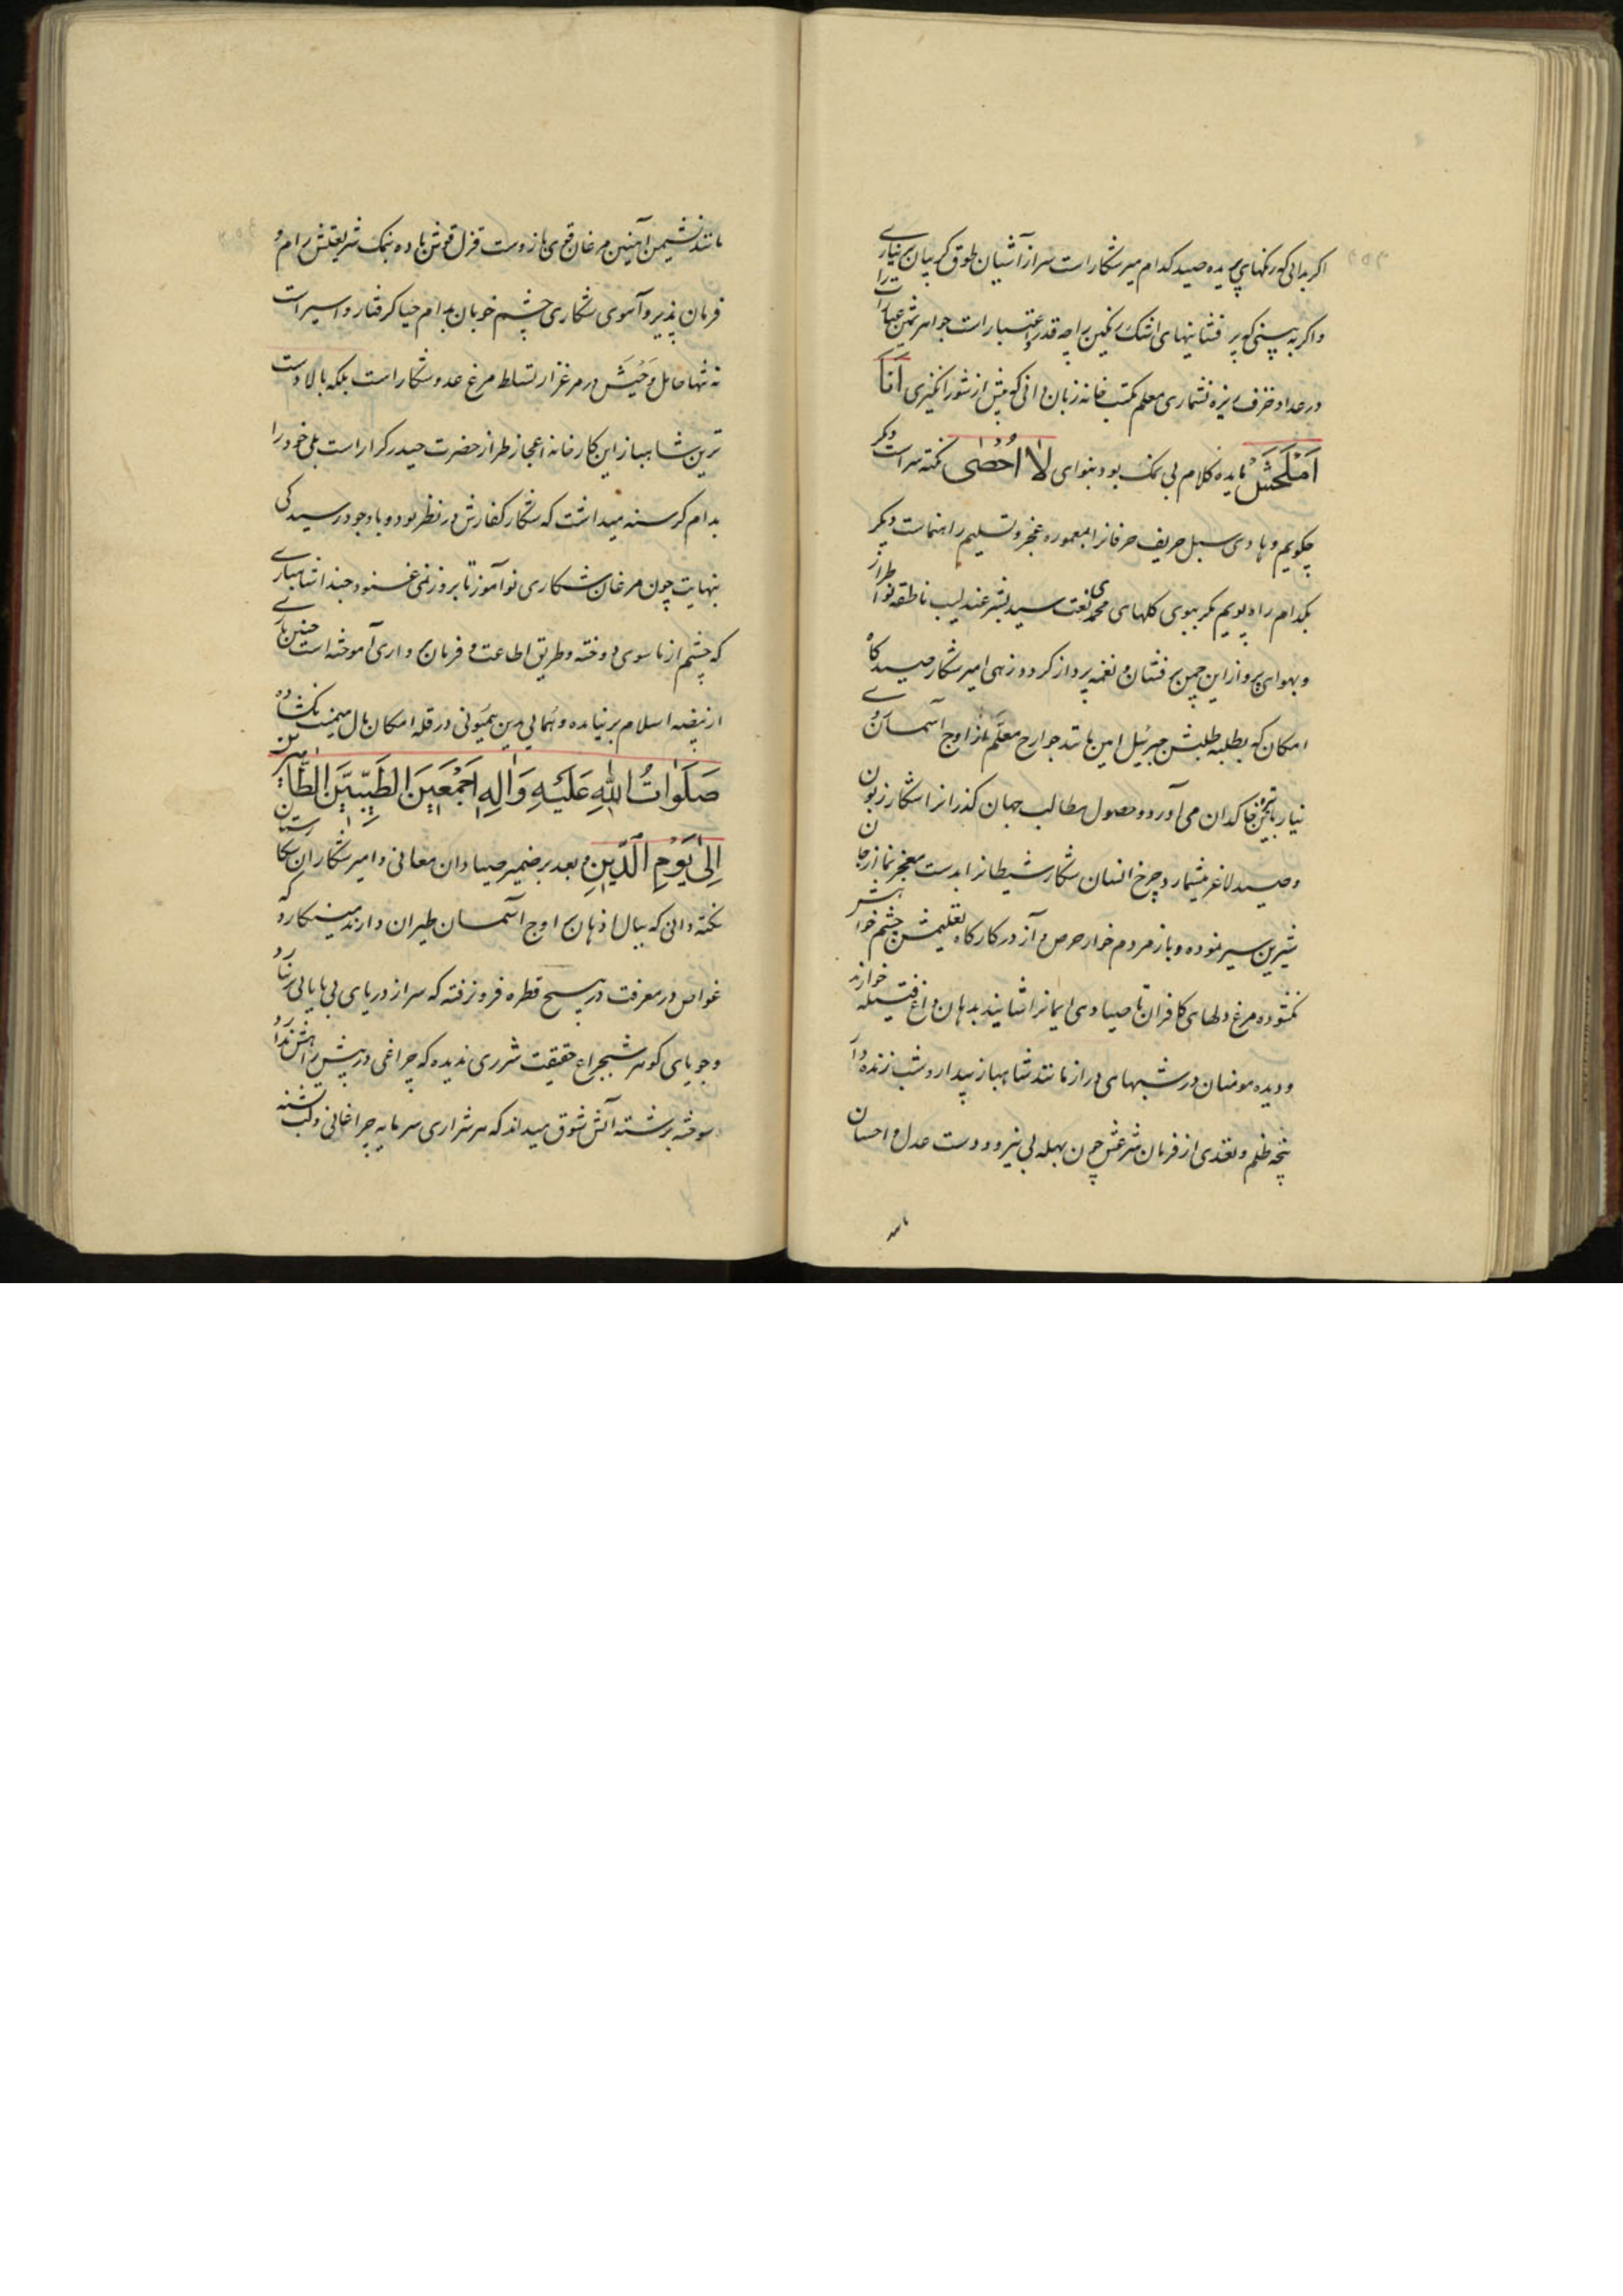 اگر بدانی که رنگهای پریده صید کدام میر شکار است سر از آشیان طوق گریبان بر نیاری
و اگر به بینی که پر فشانیهای اشک رنگین را چه قدر و اعتبار است جواهر ثمین عبارات را
در عداد خزف ریزه نشماری معلم مکتب خانه زبان دانی که پیش از شور انگیزی انا
املحش مایده کلام بی نمک بود بنوای لا احصی نکته سراست دیگر
چگویم و هادی سبل حریف حرفانرا بمعموره عجز و تسلیم راهنماست دیگر
بکدام راه پویم مگر ببوی گلهای محمدی نعت سید بشر عندلیب ناطقه نوا طراز
و بهوای پرواز این چمن پر فشان و نغمه پرداز گردد زهی امیر شکار صیدگاه
امکان که بطلبه طلبش جبرئیل امین مانند جوارح معلم از اوج آسمان
نیاز خاکدان می آورد و حصول مطالب جهان گذرانرا شکار زبون
و صید لاغر میشمارد چرخ انسان شکار شیطانرا بدست معجز نما از جان
شیرین سیر نموده و باز مردم خوار حرص و آز در کارگاه تعلیمش چشم خواهش
نگشوده مرغ دلهای کافران تا صیادی ایمانرا شایند بدهان داغ فتیله خوارند
و دیده مومنان در شبهای دراز مانند شاهباز بیدار و شب زنده دار
پنجه ظلم و تعدی از فرمان شرعش چون بهله بی نیرو و دست عدل و احسان
مانند نشیمن آهنین مرغان قوی بازوست قزل قوش باده بنمک شریعتش رام و
فرمان پذیر و آهوی شکاری چشم خوبان بدام حیا گرفتار و اسیر است
نه تنها حامل وحیش در مرغزار تسلط مرغ عدو شکار است بلکه بالا دست
ترین شاهباز این کارخانه اعجاز طراز حضرت حیدر کرار است بلی خود را
مدام گرسنه میداشت که شکار کفارش در نظر بود و با وجود رسیدگی
بنهایت چون مرغان شکاری نوآموز تا بروز نمی غنود حبذا شاهبازی
که چشم از ماسوی دوخته و طریق اطاعت و فرمان برداری آموخته است چنین بازی
از بیضه اسلام بر نیامده و همایی بدین همیونی در قله امکان بال میمنت نگشاده
صَلَوَاتُ اللهِ عَلَيْهِ وَآلِهِ اَجْمَعِينَ الطَّيِّبِينَ الطَّاهِرِينَ
اِلىٰ يَوْمِ الدِّينِ و بعد بر ضمیر صیادان معانی و امیر شکاران شکارستان
نکته دانی که ببال اذهان بر اوج آسمان طیران دارند مینگارد که
غواص در معرفت در هیچ قطره فرو نرفته که سر از دریای بی پایانی بر نیارد
و جویای گوهر شبچراغ حقیقت شرری ندیده که چراغی در پیش راهش ندارد
سوخته برشته آتش شوق میداند که هر شراری سرمایه چراغانی و لب تشنه